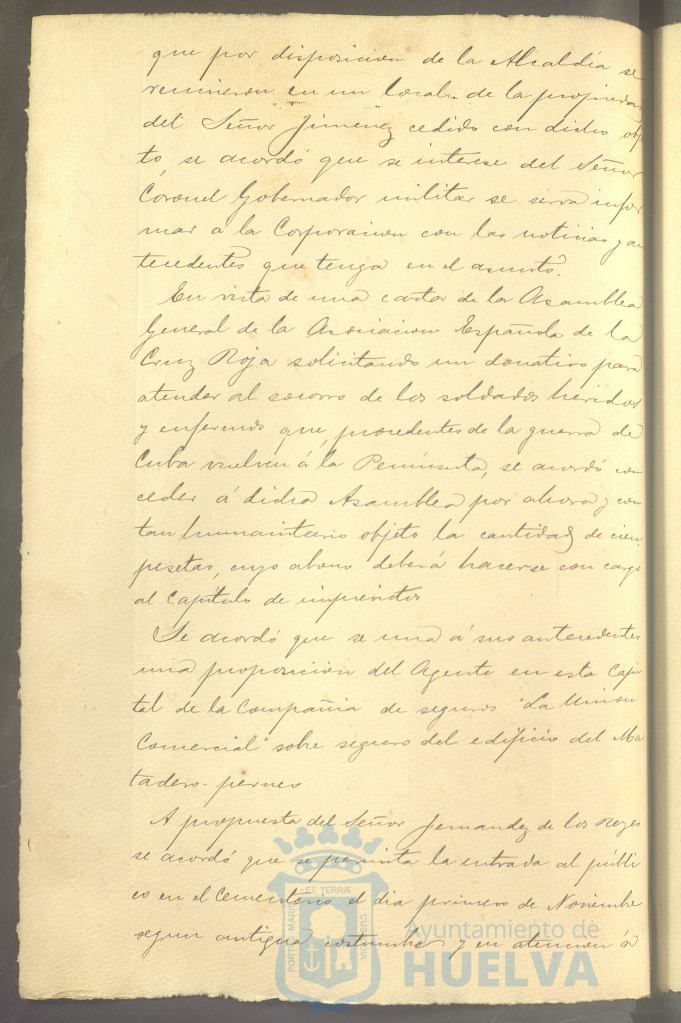 que por disposicion de la Alcaldía se
reunieron en un local de la propiedad
del Señor Jimenez cedido con dicho obje
to, se acordó que se interese del Señor
Coronel Gobernador militar se sirva infor
mar á la Corporacion con las noticias y an
tecedentes que tenga en el asunto.
En vista de una carta de la Asamblea
General de la Asociacion Española de la
Cruz Roja solicitando un donativo para
atender al socorro de los soldados heridos
y enfermos que procedentes de la guerra de
Cuba vuelven á la Península, se acordó con
ceder á dicha Asamblea por ahora y con
tan humanitario objeto la cantidad de cien
pesetas, cuyo abono deberá hacerse con cargo
al capítulo de imprevistos
Se acordó que se una á sus antecedentes
una proposicion del Agente en esta Capi
tal de la Compañia de seguros "La Union
Comercial" sobre seguro del edificio del Ma
tadero
A propuesta del Señor Fernandez de los Reyes
se acordó que se permita la entrada al públi
co en el Cementerio el dia primero de Noviembre
segun antigua costumbre y en atencion á
PORTUS MARIS ET TERRÆ CUSTODIA
Ayuntamiento de
HUELVA